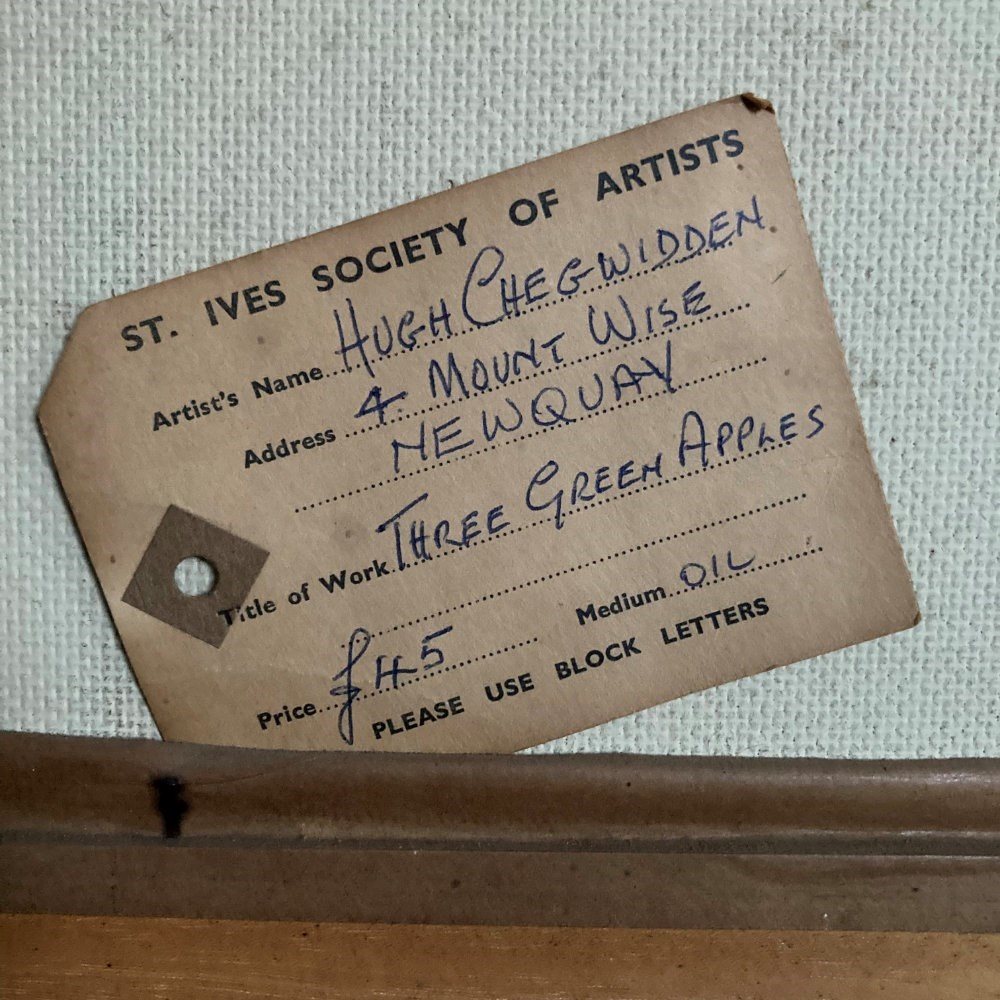 ST. IVES SOCIETY OF ARTISTS
Artist's Name HUGH CHEGWIDDEN
Address 4. MOUNT WISE
NEWQUAY
Title of Work THREE GREEN APPLES
Price £45 Medium OIL
PLEASE USE BLOCK LETTERS